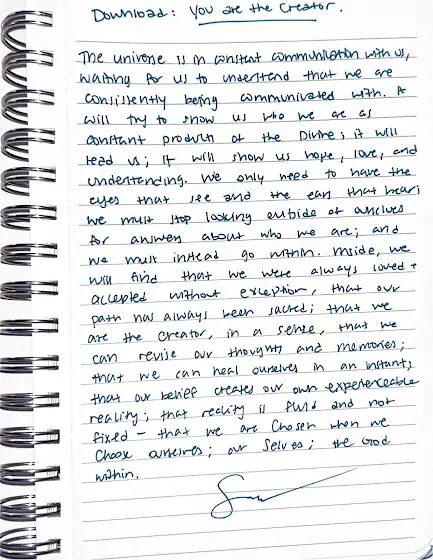 Download: You are the Creator.
The universe is in constant communication with us,
waiting for us to understand that we are
consistently being communicated with. It
will try to show us who we are as
constant products of the Divine; it will
lead us; it will show us hope, love, and
understanding. We only need to have the
eyes that see and the ears that hear;
we must stop looking outside of ourselves
for answers about who we are; and
we must instead go within. Inside, we
will find that we were always loved +
accepted without exception, that our
path has always been sacred; that we
are the creator, in a sense, that we
can revise our thoughts and memories;
that we can heal ourselves in an instant;
that our belief creates our own experienceable
reality; that reality is fluid and not
fixed - that we are chosen when we
choose ourselves; our selves; the God
within.